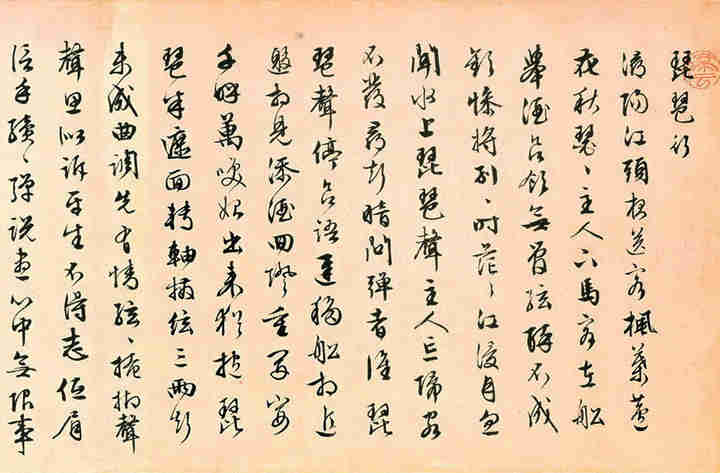 琵琶行
潯陽江頭夜送客楓葉蘆
花秋瑟々主人下馬客在船
舉酒欲飲無管絃醉不成
歡慘將別々時茫々江浸月忽
聞水上琵琶聲主人忘歸客
不發尋聲暗問彈者誰琵
琶聲停欲語遲移船相近
邀相見添酒回燈重開宴
千呼萬喚始出來猶抱琵
琶半遮面轉軸撥絃三兩聲
未成曲調先有情絃々掩抑聲
聲思似訴平生不得志低眉
信手續々彈說盡心中無限事